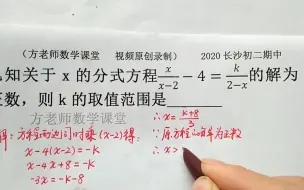 （方老师数学课堂 视频原创录制） 2020 长沙初二期中
知关于 x 的分式方程 x/(x-2) - 4 = k/(2-x) 的解为
正数，则 k 的取值范围是
方老师数学课堂
解：方程两边同时乘(x-2)得：
x-4(x-2)=-k
x-4x+8=-k
-3x=-k-8
∴x=(k+8)/3
∵原方程的解为正数
∴x>